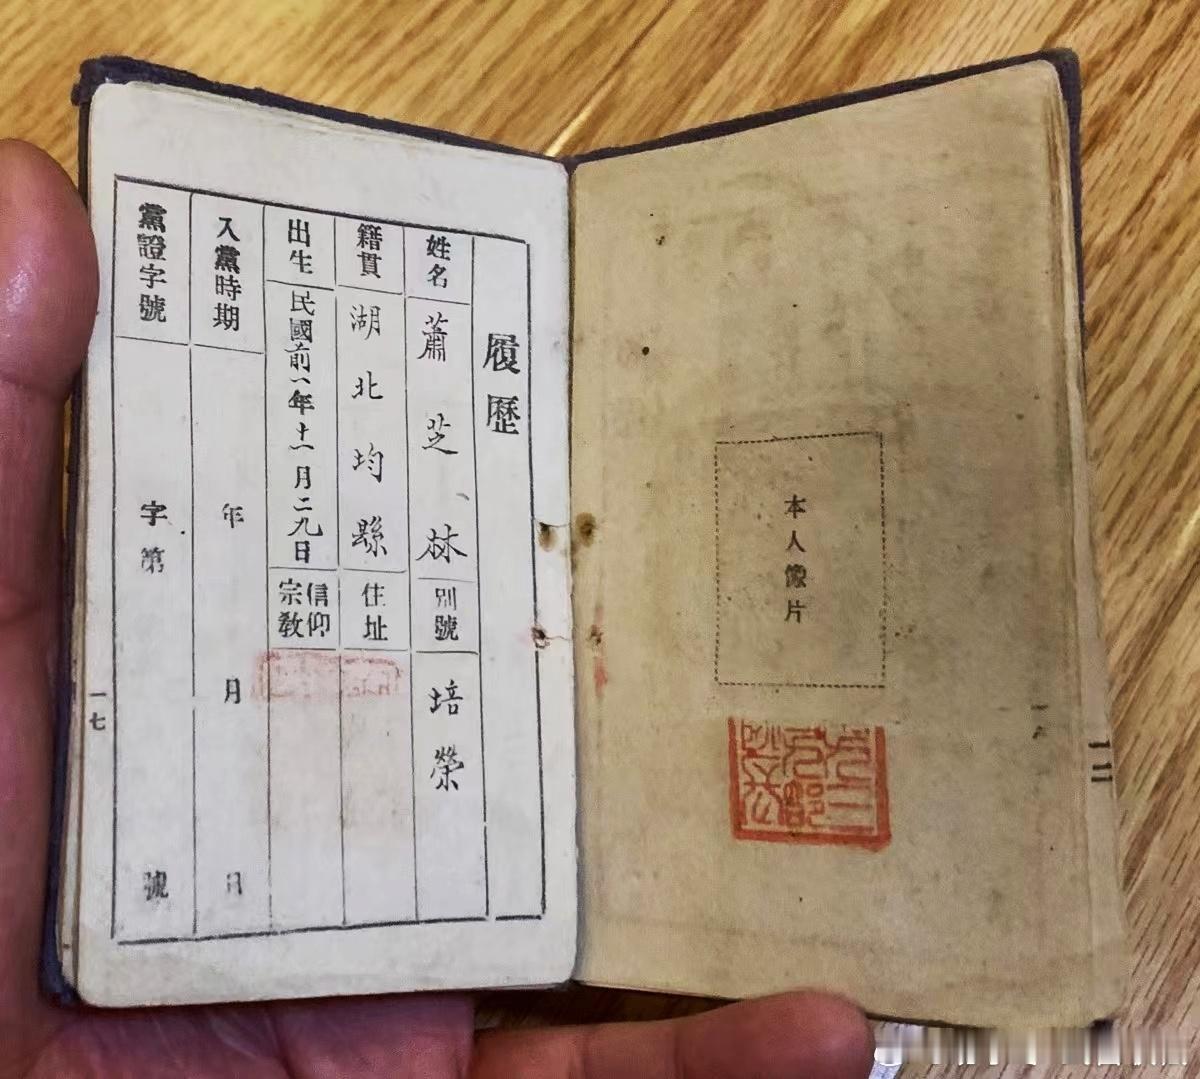 本人像片
履歷
姓名 蕭芝林 別號 培榮
籍貫 湖北均縣 住址
出生 民國前一年十一月二九日 信仰宗教
入黨時期 年 月 日
黨證字號 字第 號
一七